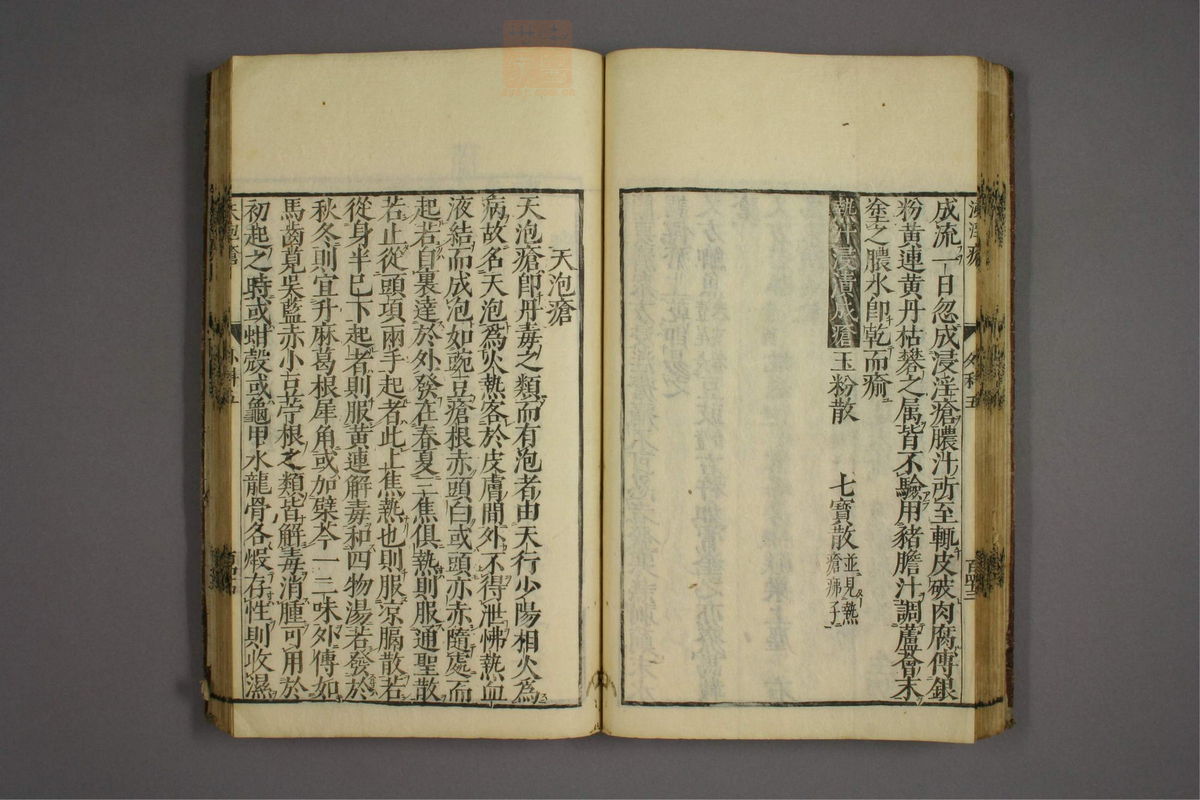 成流一日忽成浸淫瘡膿汁所至輒皮破肉腐傅銀
粉黃連黃丹枯礬之属皆不驗用豬膽汁調蘆薈末
塗之膿水卽乾而瘉
熱汗浸漬成瘡 玉粉散 七寶散 並見熱
瘡疿子
天泡瘡
天泡瘡卽丹毒之類而有泡者由天行少陽相火爲
病故名天泡爲火熱客於皮膚間外不得泄怫熱血
液結而成泡如豌豆瘡根赤頭白或頭亦赤隨處而
起若自裏達於外發在春夏三焦俱熱則服通聖散
若止從頭項兩手起者此上焦熱也則服凉膈散若
從身半已下起者則服黃連解毒和四物湯若發於
秋冬則宜升麻葛根犀角或加檗芩一二味外傅如
馬齒莧吳藍赤小豆苧根之類皆解毒消腫可用於
初起之時或蚶殼或龜甲水龍骨各煆存性則收濕
天泡瘡
外科五